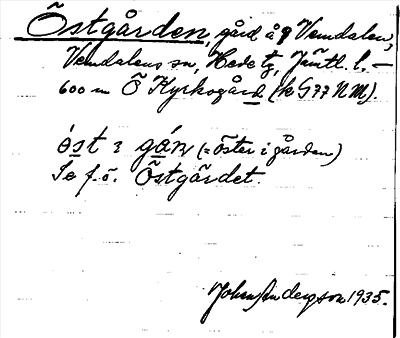 Östgården, gård å Vemdalen,
Vemdalens sn, Hede tg, Jämtl. l. –
600 m Ö Kyrkogård (k G77 NM).
öst i gán (= öster i gården)
Se f.ö. Östgärdet.
John Anderson 1935.